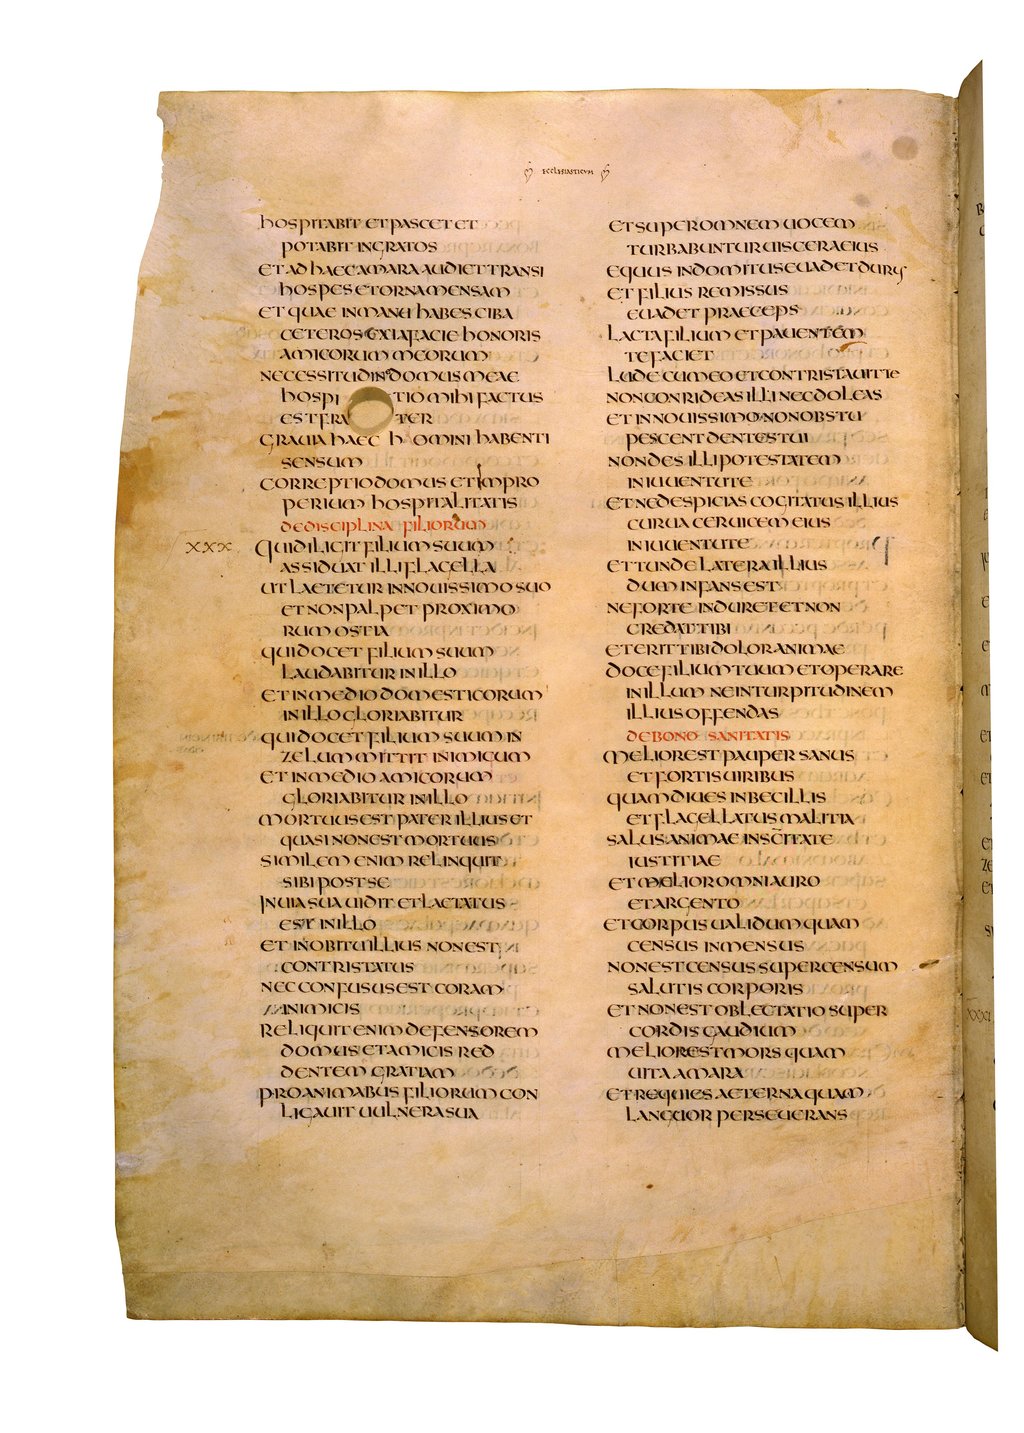 ECCLESIASTICUM
HOSPITABIT ET PASCET ET
POTABIT INGRATOS
ET AD HAEC AMARA AUDIET TRANSI
HOSPES ET ORNA MENSAM
ET QUAE IN MANU HABES CIBA
CETEROS EXI A FACIE HONORIS
AMICORUM MEORUM
NECESSITUDIN DOMUS MEAE
HOSPITIO MIHI FACTUS
EST FRATER
GRAVIA HAEC HOMINI HABENTI
SENSUM
CORREPTIO DOMUS ET INPRO
PERIUM HOSPITALITATIS
DE DISCIPLINA FILIORUM
XXX
QUI DILIGIT FILIUM SUUM
ASSIDUAT ILLI FLAGELLA
UT LAETETUR IN NOUISSIMO SUO
ET NON PALPET PROXIMO
RUM OSTIA
QUI DOCET FILIUM SUUM
LAUDABITUR IN ILLO
ET IN MEDIO DOMESTICORUM
IN ILLO GLORIABITUR
QUI DOCET FILIUM SUUM IN
ZELUM MITTIT INIMICUM
ET IN MEDIO AMICORUM
GLORIABITUR IN ILLO
MORTUUS EST PATER ILLIUS ET
QUASI NON EST MORTUUS
SIMILEM ENIM RELINQUIT
SIBI POST SE
IN UIA SUA UIDIT ET LAETATUS
EST IN ILLO
ET IN OBITU ILLIUS NON EST
CONTRISTATUS
NEC CONFUSUS EST CORAM
INIMICIS
RELIQUIT ENIM DEFENSOREM
DOMUS ET AMICIS RED
DENTEM GRATIAM
PRO ANIMABUS FILIORUM CON
LIGAUIT UULNERA SUA
ET SUPER OMNEM UOCEM
TURBABUNTUR UISCERA EIUS
EQUUS INDOMITUS EUADET DURUS
ET FILIUS REMISSUS
EUADET PRAECEPS
LACTA FILIUM ET PAUENTEM
TE FACIET
LUDE CUM EO ET CONTRISTAUIT TE
NON CONRIDEAS ILLI NEC DOLEAS
ET IN NOUISSIMO NON OBSTU
PESCENT DENTES TUI
NON DES ILLI POTESTATEM
IN IUUENTUTE
ET NE DESPICIAS COGITATUS ILLIUS
CURUA CERUICEM EIUS
IN IUUENTUTE
ET TUNDE LATERA ILLIUS
DUM INFANS EST
NE FORTE INDURET ET NON
CREDAT TIBI
ET ERIT TIBI DOLOR ANIMAE
DOCE FILIUM TUUM ET OPERARE
IN ILLUM NE IN TURPITUDINEM
ILLIUS OFFENDAS
DE BONO SANITATIS
MELIOR EST PAUPER SANUS
ET FORTIS UIRIBUS
QUAM DIUES INBECILLIS
ET FLAGELLATUS MALITIA
SALUS ANIMAE IN SCITATE
IUSTITIAE
ET MELIOR OMNI AURO
ET ARGENTO
ET CORPUS UALIDUM QUAM
CENSUS INMENSUS
NON EST CENSUS SUPER CENSUM
SALUTIS CORPORIS
ET NON EST OBLECTATIO SUPER
CORDIS GAUDIUM
MELIOR EST MORS QUAM
UITA AMARA
ET REQUIES AETERNA QUAM
LANGUOR PERSEUERANS